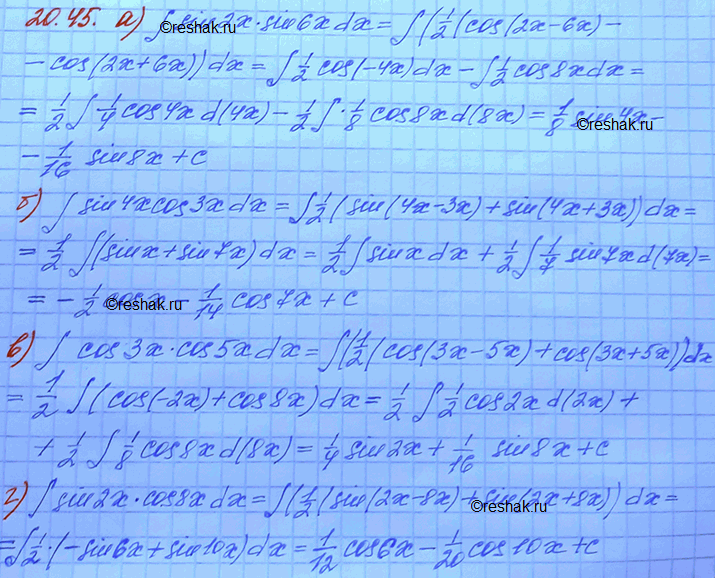 20.45. а) ∫ sin2x·sin6x dx = ∫(1/2(cos(2x-6x) -
- cos(2x+6x)) dx = ∫ 1/2 cos(-4x) dx - ∫ 1/2 cos8x dx =
= 1/2 ∫ 1/4 cos4x d(4x) - 1/2 ∫ · 1/8 cos8x d(8x) = 1/8 sin4x -
©reshak.ru
- 1/16 sin8x + c
б) ∫ sin4x cos3x dx = ∫ 1/2 (sin(4x-3x) + sin(4x+3x)) dx =
= 1/2 ∫(sinx + sin7x) dx = 1/2 ∫ sinx dx + 1/2 ∫ 1/7 sin7x d(7x) =
= - 1/2 cosx - 1/14 cos7x + c
©reshak.ru
в) ∫ cos3x·cos5x dx = ∫(1/2(cos(3x-5x) + cos(3x+5x)) dx
= 1/2 ∫(cos(-2x) + cos8x) dx = 1/2 ∫ 1/2 cos2x d(2x) +
+ 1/2 ∫ 1/8 cos8x d(8x) = 1/4 sin2x + 1/16 sin8x + c
г) ∫ sin2x·cos8x dx = ∫(1/2(sin(2x-8x) + sin(2x+8x)) dx =
©reshak.ru
= ∫ 1/2 · (-sin6x + sin10x) dx = 1/12 cos6x - 1/20 cos10x + c